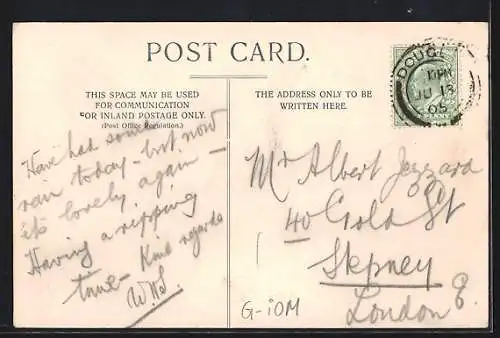 POST CARD.
THIS SPACE MAY BE USED
FOR COMMUNICATION
FOR INLAND POSTAGE ONLY.
(Post Office Regulation.)
THE ADDRESS ONLY TO BE
WRITTEN HERE.
DOUGL
JU 13
05
Have had some
rain today - but now
it's lovely again -
Having a ripping
time - Kind regards
W.H.S.
Mr Albert Jezzard
40 Gold St
Stepney
London E.
G-iOM